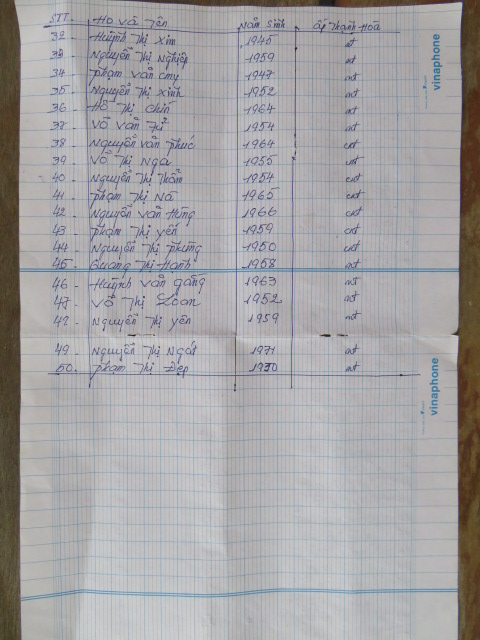 STT. Họ và Tên Năm Sinh ấp Thạnh Hoà
32 - Huỳnh Thị Xim 1945 nt
33 - Nguyễn Thị Nghiệp 1959 nt
34 - phạm văn 1947 nt
35 - Nguyễn Thị Xinh 1952 nt
36 - Hồ Thị chín 1964 nt
37 - Võ văn 1954 nt
38 - Nguyễn văn phúc 1964 nt
39 - Võ Thị Nga 1955 nt
40 - Nguyễn Thị Thắm 1954 nt
41 - phạm Thị Na 1965 nt
42 - Nguyễn văn Hừng 1966 nt
43 - phạm Thị yến 1959 nt
44 - Nguyễn Thị phụng 1950 nt
45 - Quang Thị Hạnh 1958 nt
46 - Huỳnh văn gắng 1963 nt
47 - Võ Thị Loan 1952 nt
48 - Nguyễn Thị yên 1959 nt
49 - Nguyễn Thị Ngát 1971 nt
50 - phạm Thị Đẹp nt
vinaphone
vinaphone